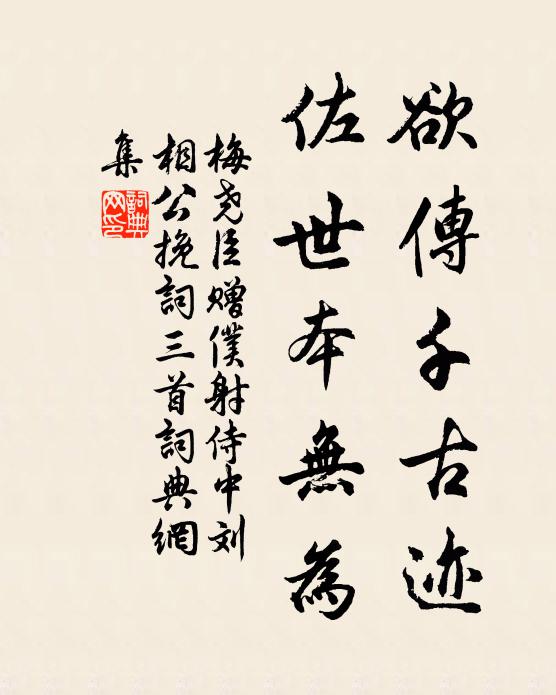 欲傳千古迹
佐世本無為
梅尧臣赠僕射侍中刘
相公挽詞三首詞典網
集
詞典
网印